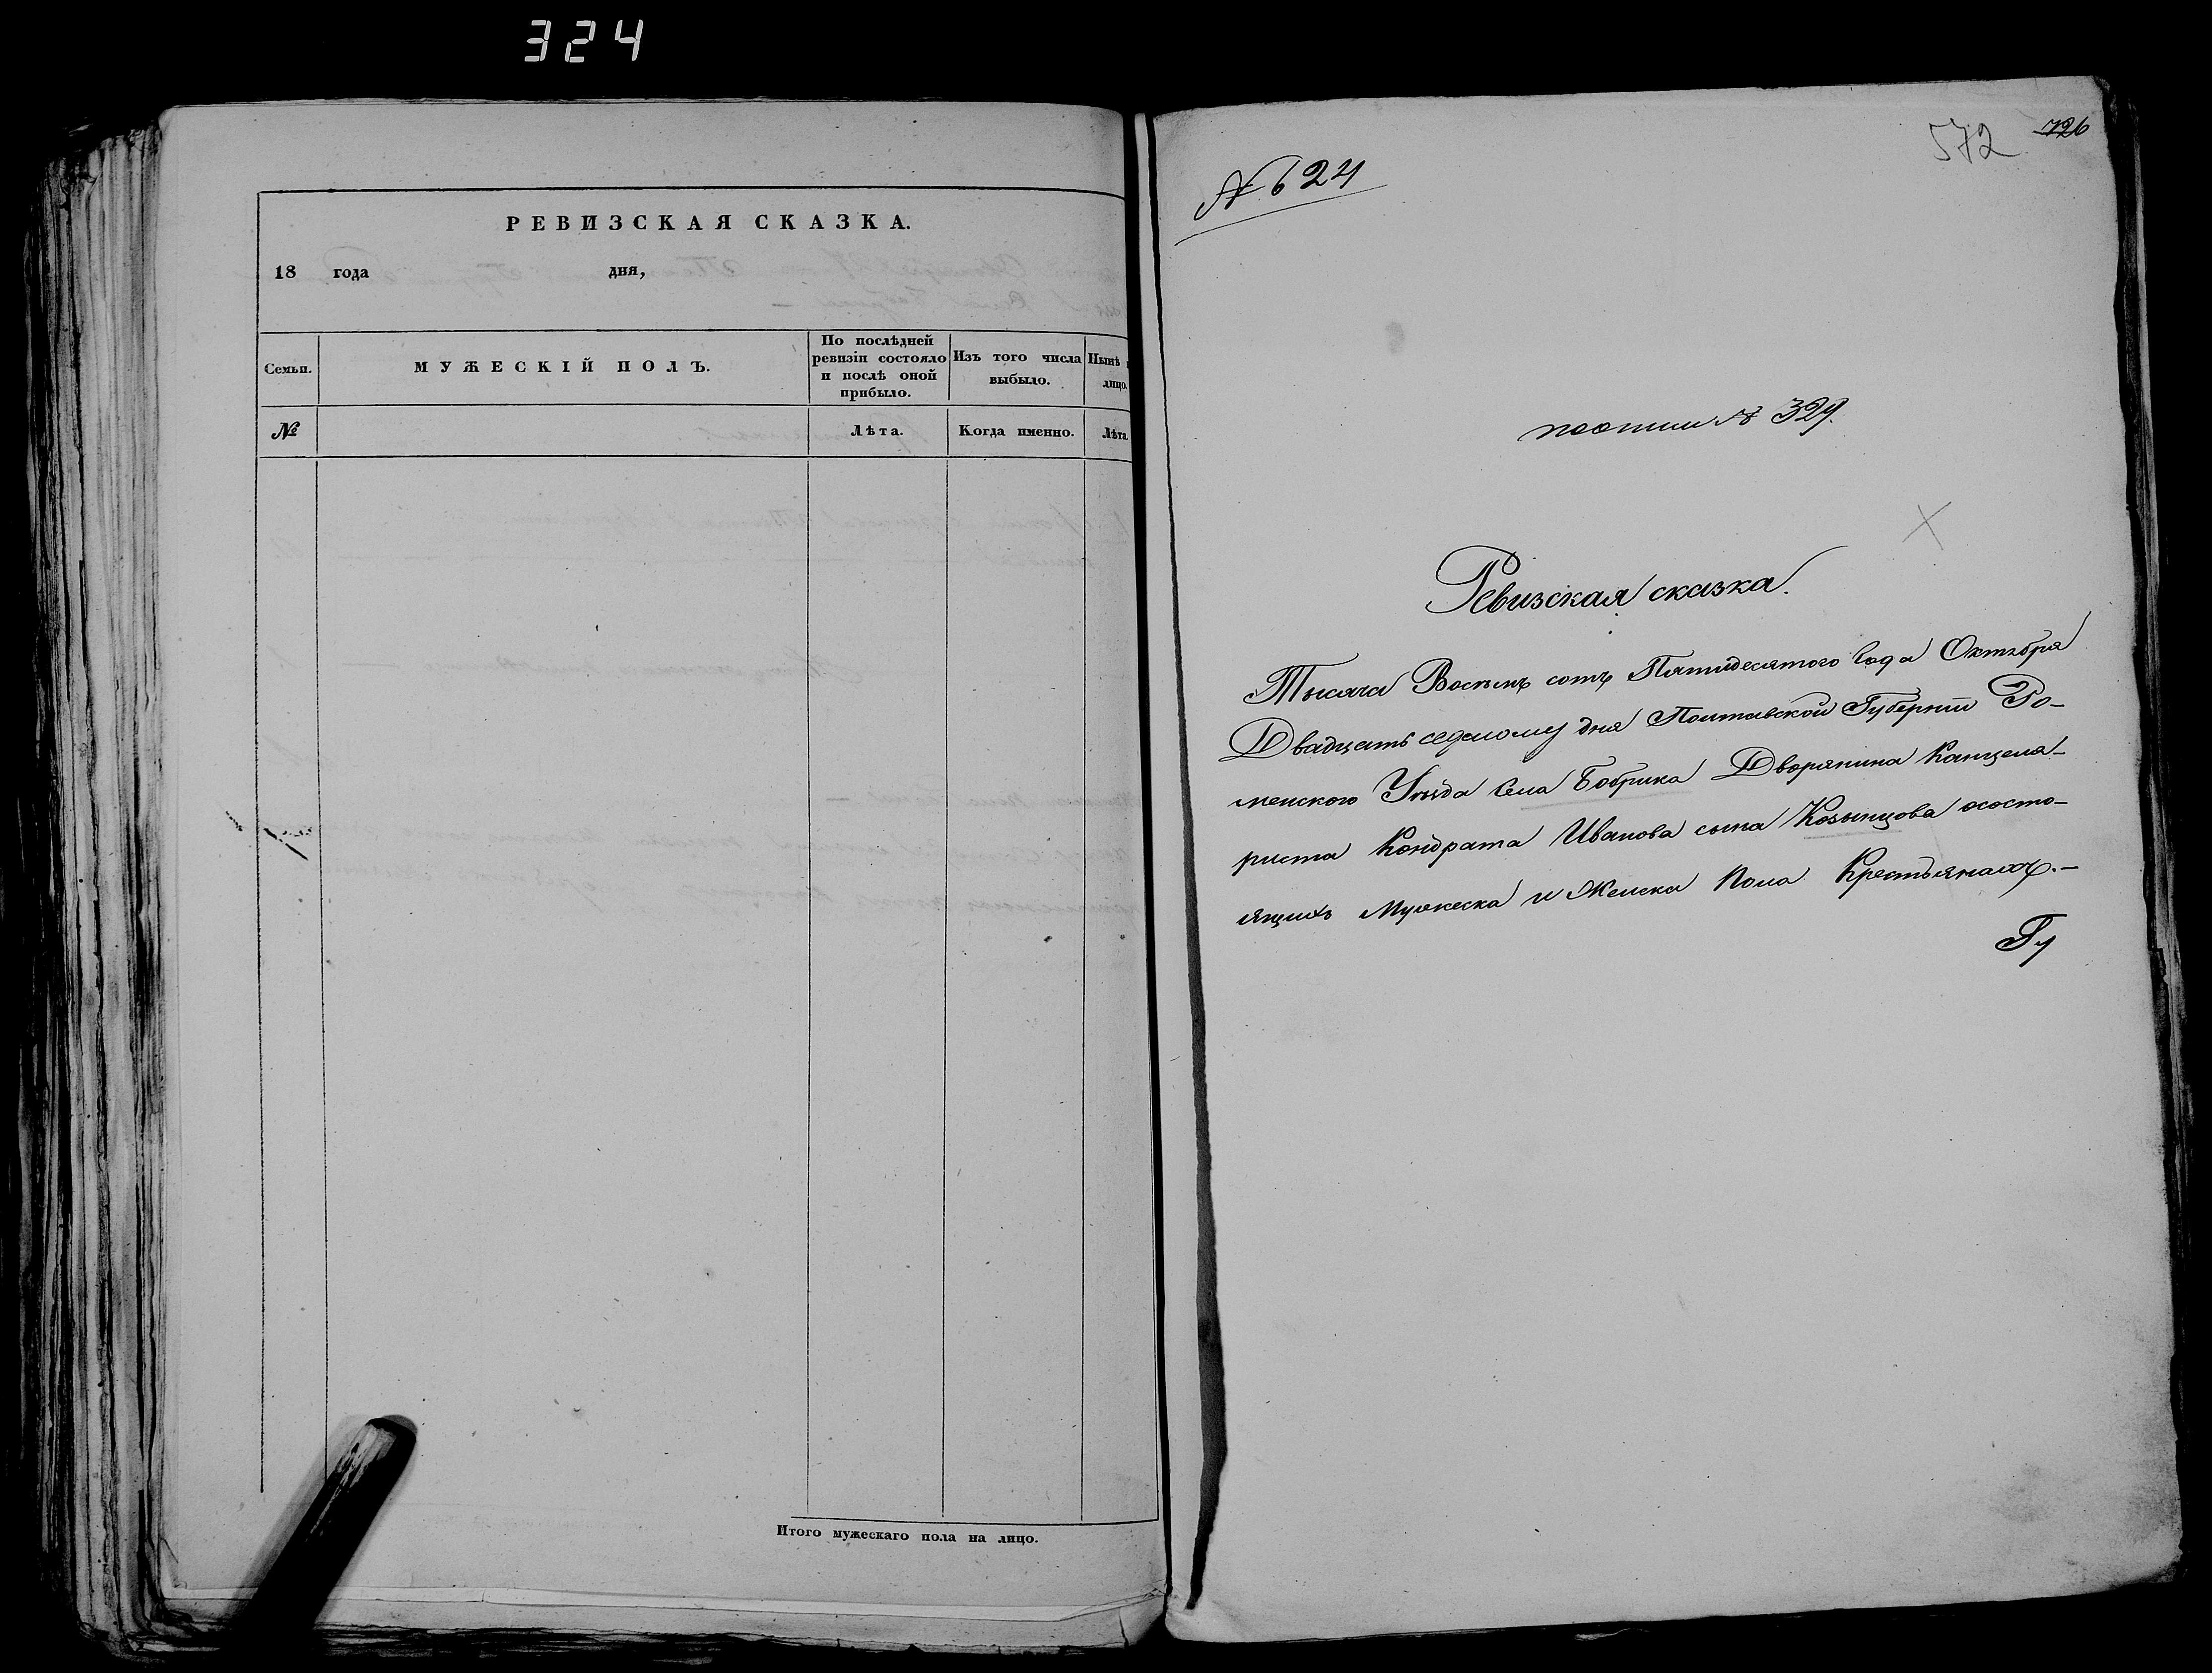 324
РЕВИЗСКАЯ СКАЗКА.
18 года дня,
Семьи.
МУЖЕСКІЙ ПОЛЪ.
По послѣдней
ревизіи состояло
и послѣ оной
прибыло.
Изъ того числа
выбыло.
Нынѣ
лицо.
№
Лѣта.
Когда именно.
Лѣта
Итого мужескаго пола на лицо.
572 726
№ 624
№ 329.
Ревизская сказка.
Тысяча Восемь сотъ Пятидесятого года Октября
Двадцать седмому дня Полтавской Губерніи Ро-
менского Уѣзда села Бобрика Дворянина Канцеля-
риста Кондрата Иванова сына Козинцова ососто-
ящихъ Мужеска и Женска пола Крестьянахъ.-
Гу